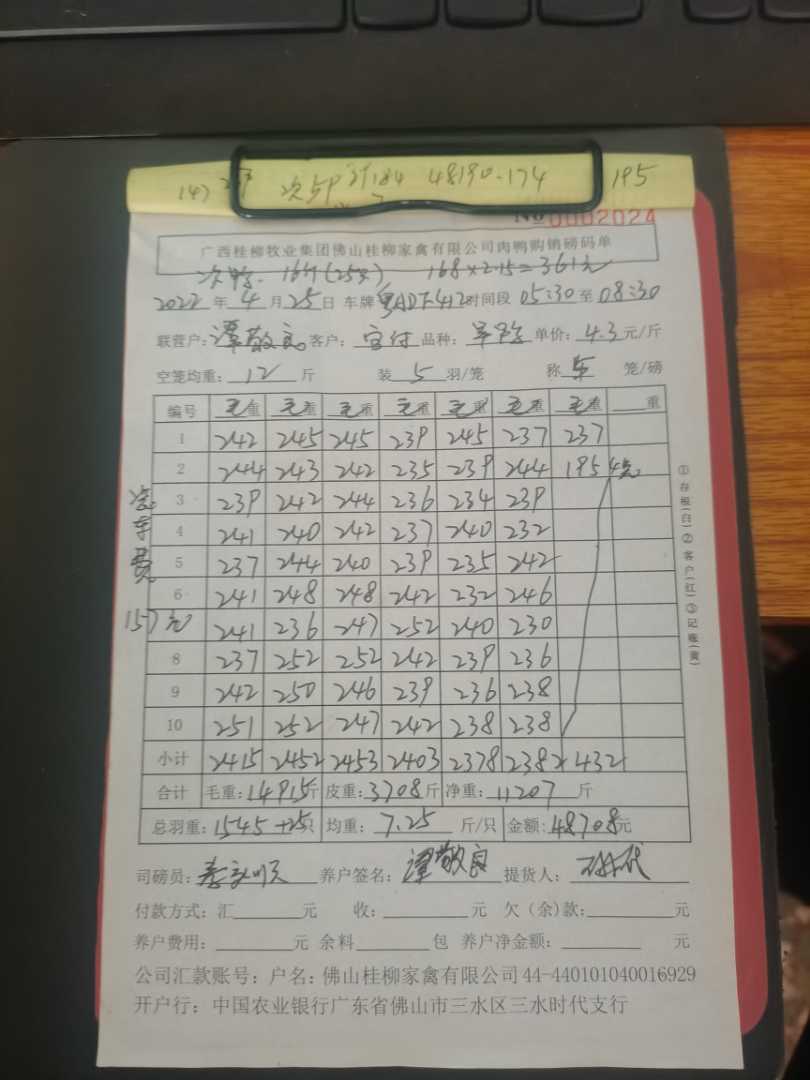 147 次鸭 48190.174 195
No 0002024
广西桂柳牧业集团佛山桂柳家禽有限公司肉鸭购销磅码单
168×2.15=361元
2022年4月25日 车牌 时间段 05:30 至 08:30
联营户:谭敬良 客户: 品种: 单价:4.3元/斤
空笼均重:12斤 装5羽/笼 称 笼/磅
编号 毛重 毛重 毛重 毛重 毛重 毛重 毛重 重
1 242 245 245 239 245 237 237
2 244 243 242 235 239 244 195
3 239 242 244 236 234 239
4 241 240 242 237 240 232
5 237 244 240 239 235 242
6 241 248 248 242 232 246
241 236 247 252 240 230
8 237 252 252 242 239 236
9 242 250 246 239 236 238
10 251 252 247 242 238 238
小计 2415 2452 2453 2403 2378 2382 432
合计 毛重:14915斤 皮重:3708斤 净重:11207斤
总羽重:1545+25只 均重:7.25斤/只 金额:48708元
司磅员: 养户签名:谭敬良 提货人:
付款方式:汇 元 收: 元 欠(余)款: 元
养户费用: 元 余料 包 养户净金额: 元
公司汇款账号:户名:佛山桂柳家禽有限公司44-440101040016929
开户行:中国农业银行广东省佛山市三水区三水时代支行
洗车费
157元
①存根(白)②客户(红)③记账(黄)